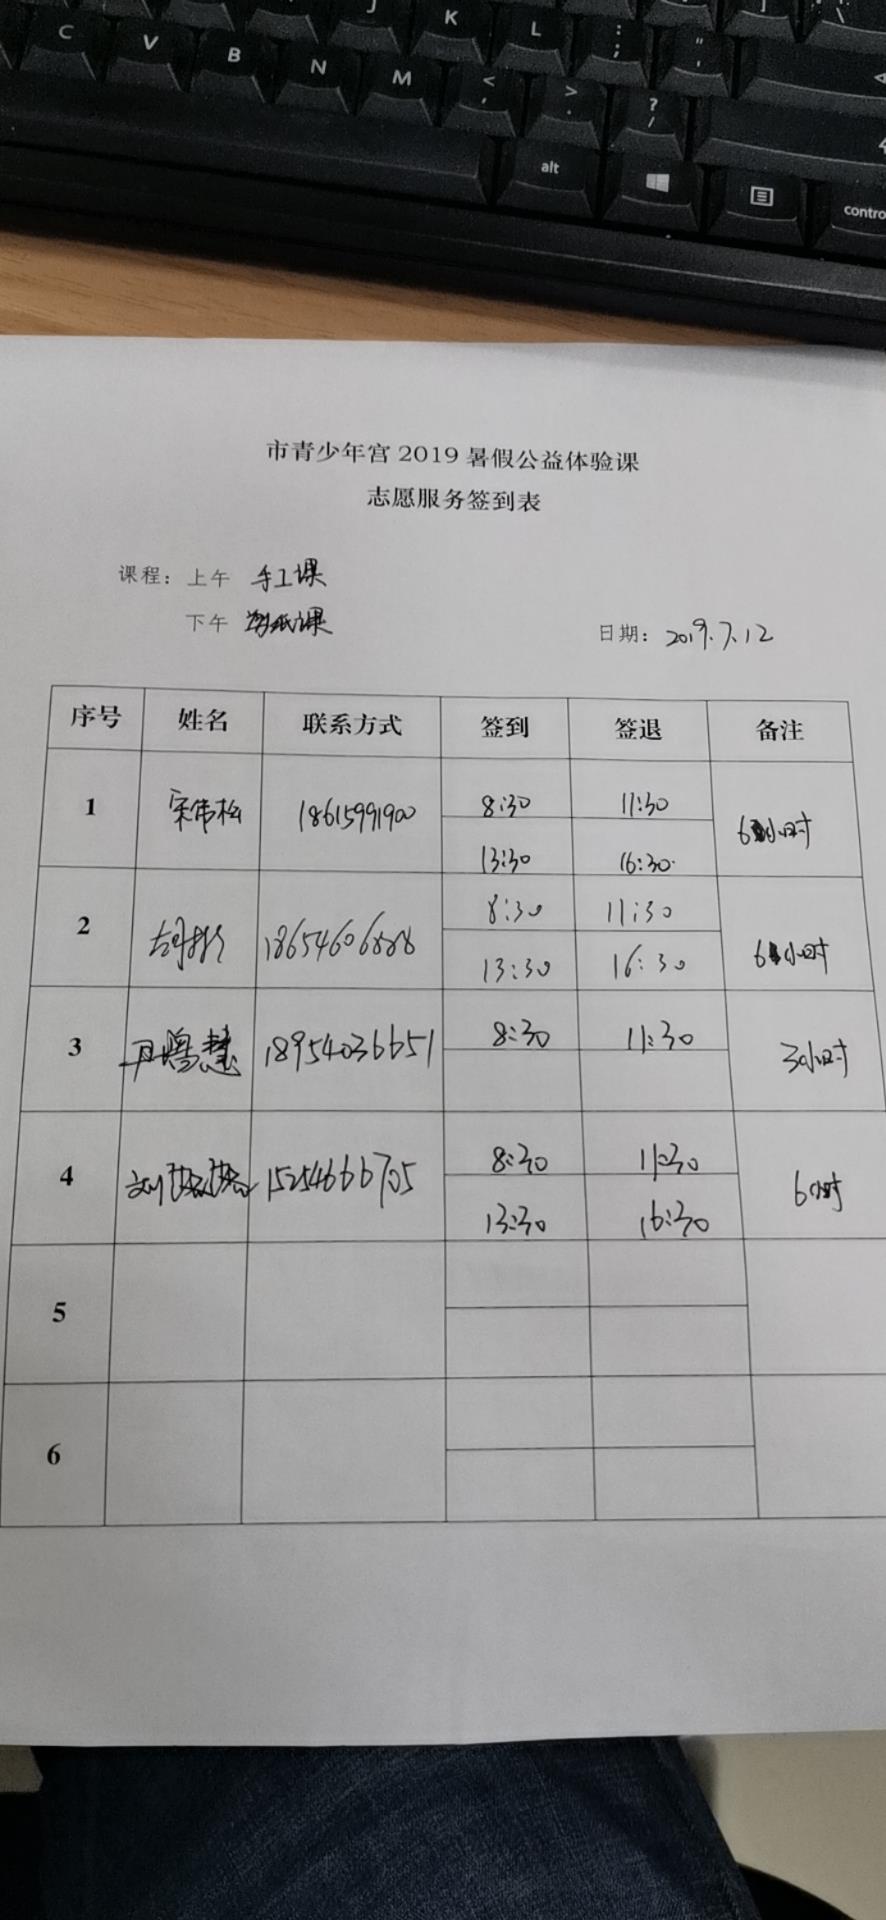 J K L : ;
" '
] \
C V B N M < , > . ? /
alt
contro
市青少年宫 2019 暑假公益体验课
志愿服务签到表
课程: 上午 手工课
下午 剪纸课
日期: 2019.7.12
序号 姓名 联系方式 签到 签退 备注
1 宋伟松 18615991900 8:30 11:30 6小时
13:30 16:30
2 18654606888 8:30 11:30 6小时
13:30 16:30
3 18954036651 8:30 11:30 3小时
4 15254666705 8:30 11:30 6小时
13:30 16:30
5
6